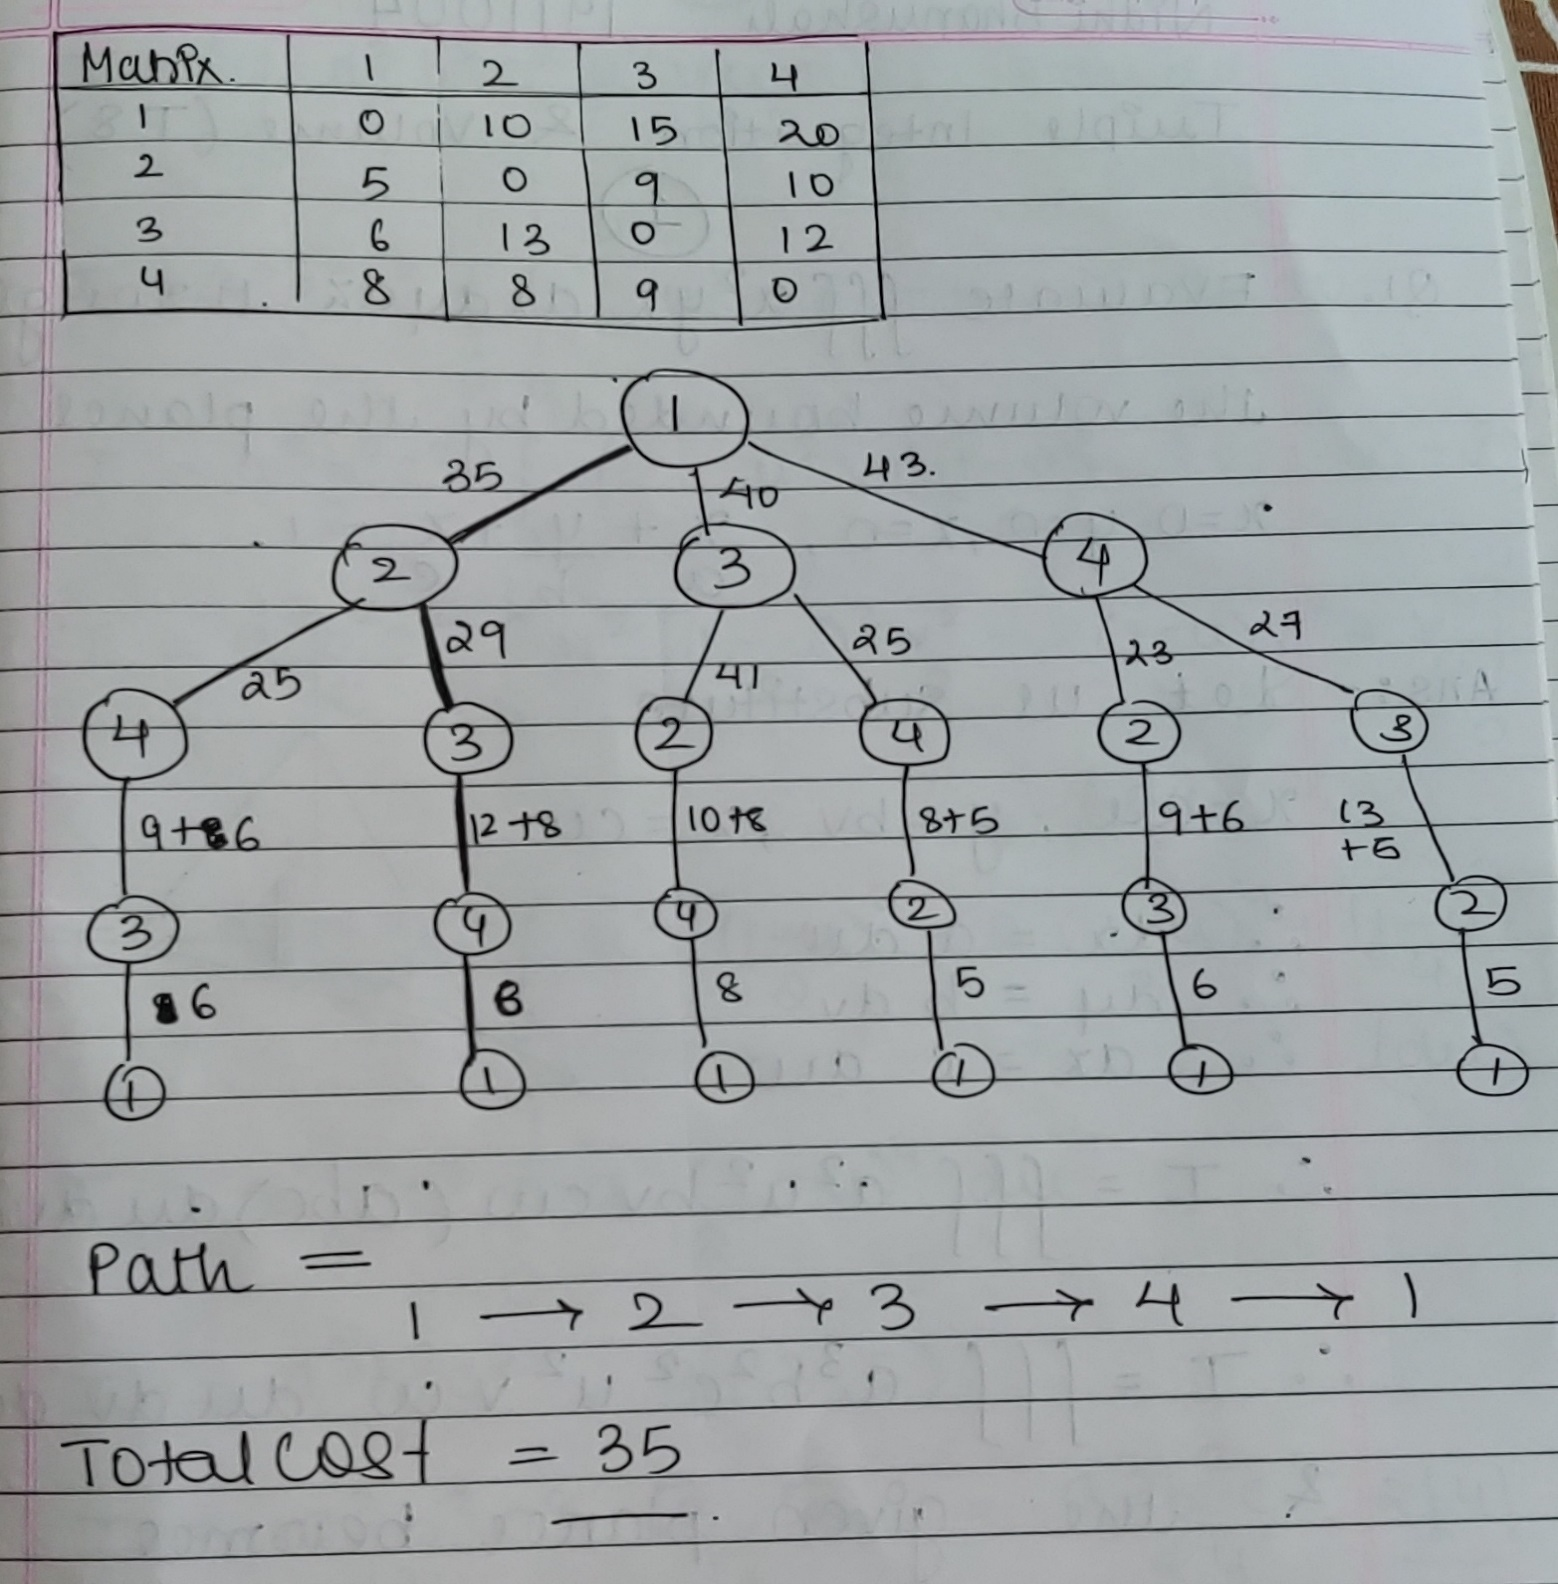 Matrix. 1 2 3 4
1 0 10 15 20
2 5 0 9 10
3 6 13 0 12
4 8 8 9 0
1
35 40 43.
2 3 4
25 29 41 25 23 27
4 3 2 4 2 3
9+6 12+8 10+8 8+5 9+6 13+5
3 4 4 2 3 2
6 8 8 5 6 5
1 1 1 1 1 1
Path =
1 → 2 → 3 → 4 → 1
Total cost = 35